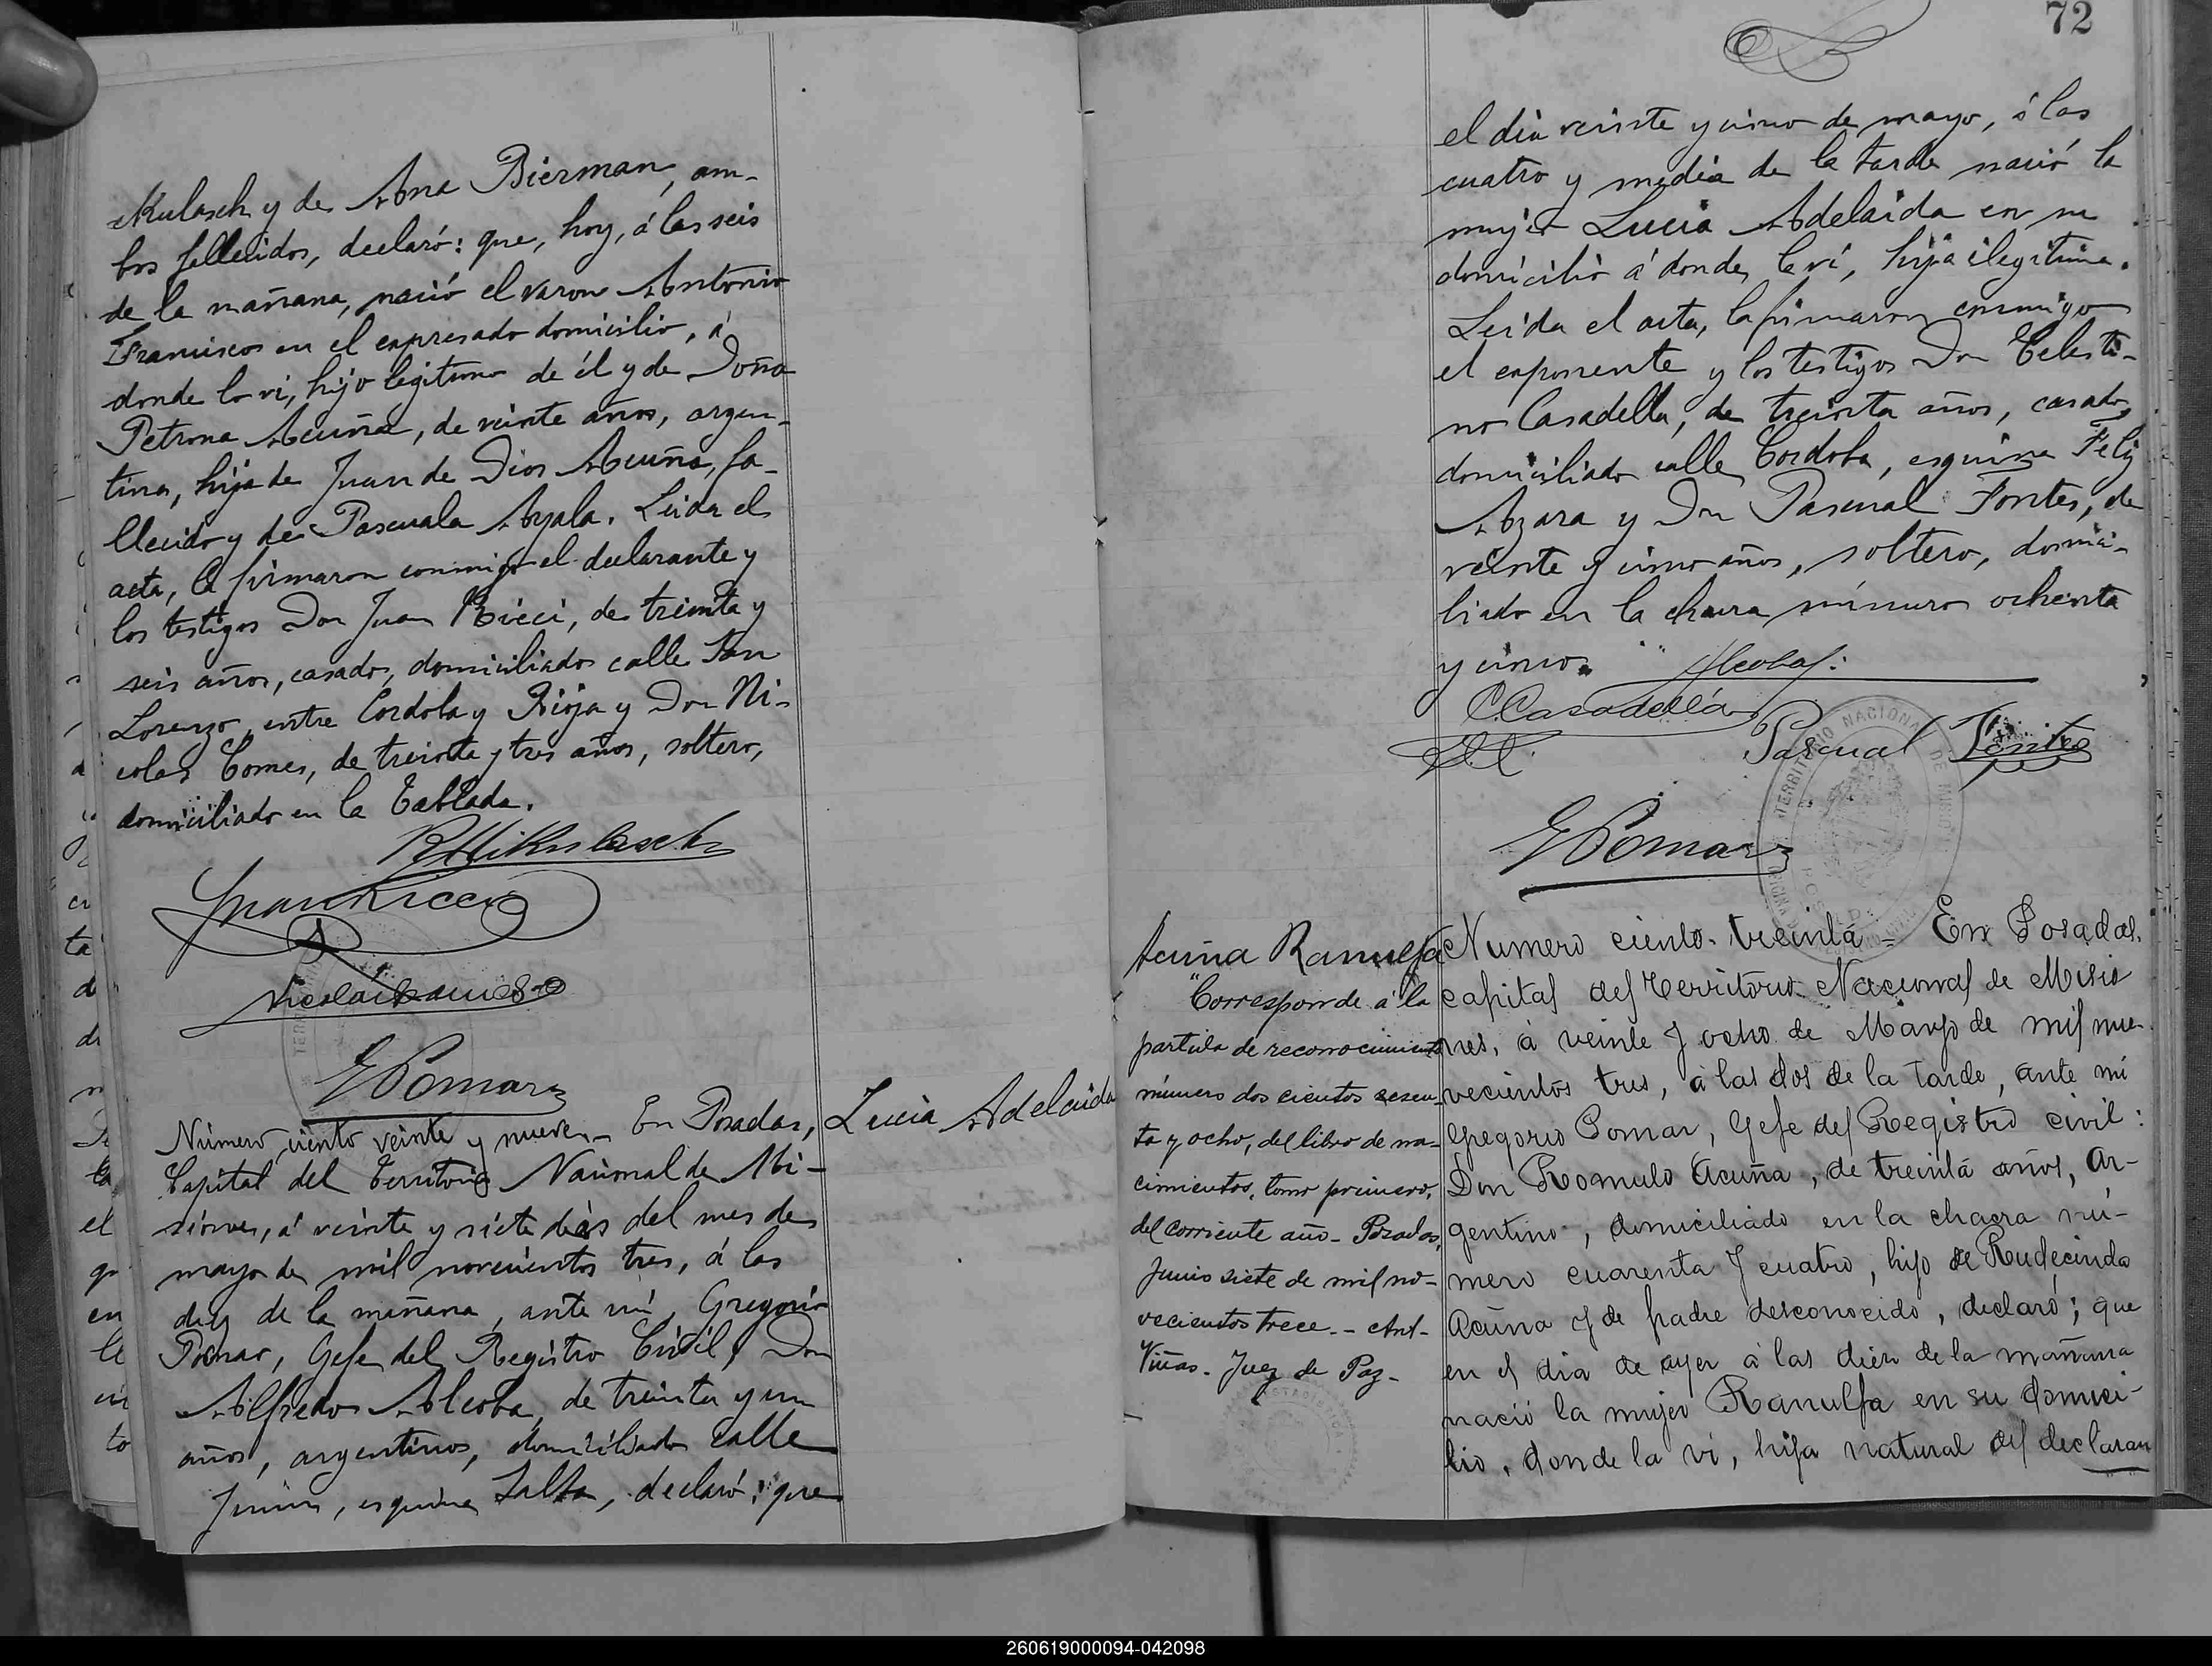 Mulasch y de Ana Bierman, am-
bos fallecidos, declaró: que, hoy, á las seis
de la mañana, nació el varon Antonio
Francisco en el expresado domicilio, á
donde lo vi, hijo legitimo de él y de Doña
Petrona Acuña, de veinte años, argen-
tina, hija de Juan de Dios Acuña, fa-
llecido y de Pascuala Ayala. Leida el
acta, la firmaron conmigo el declarante y
los testigos Don Juan Ricci, de treinta y
seis años, casado, domiciliado calle San
Lorenzo, entre Cordoba y Rioja y Don Ni-
colas Comes, de treinta y tres años, soltero,
domiciliado en la Tablada.
RMikulasch
Juan Ricci
EPomar
Lucia Adelaida
Número ciento veinte y nueve. En Posadas,
Capital del Territorio Nacional de Mi-
siones, á veinte y siete dias del mes de
mayo de mil novecientos tres, á las
diez de la mañana, ante mí, Gregorio
Pomar, Gefe del Registro Civil, Don
Alfredo Alcoba, de treinta y un
años, argentino, domiciliado calle
Junin, esquina Salta, declaró: que
72
el dia veinte y cinco de mayo, á las
cuatro y media de la tarde nació la
mujer Lucia Adelaida en su
domicilio á donde la vi, hija ilegitima.
Leida el acta, la firmaron conmigo
el exponente y los testigos Don Celesti-
no Casadella, de treinta años, casado,
domiciliado calle Cordoba, esquina Felix
Azara y Don Pascual Fontes, de
veinte y cinco años, soltero, domici-
liado en la chacra número ochenta
y cinco.
Alcoba
C.Casadellá
Pascual Fontes
EPomar
Acuña Ranulfa
"Corresponde á la
partida de reconocimiento
número dos cientos sesen-
ta y ocho, del libro de na-
cimientos, tomo primero,
del corriente año - Posadas,
Junio siete de mil no-
vecientos trece. - Ant.
Viñas. Juez de Paz -
Numero ciento treinta - En Posadas,
capital del Territorio Nacional de Misio
nes, á veinte y ocho de Mayo de mil nue-
vecientos tres, á las dos de la tarde, ante mi
Gregorio Pomar, Gefe del Registro civil:
Don Romulo Acuña, de treinta años, Ar-
gentino, domiciliado en la chacra nú-
mero cuarenta y cuatro, hijo de Rudecinda
Acuña y de padre desconocido, declaró; que
en el dia de ayer á las diez de la mañana
nació la mujer Ranulfa en su domici-
lio, donde la vi, hija natural del declaran
260619000094-042098